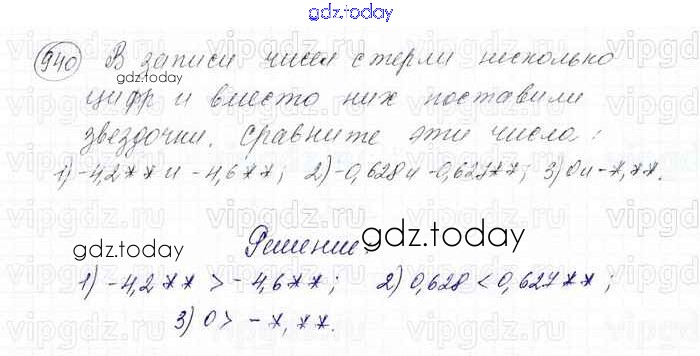 gdz.today
940 В записи чисел стерли несколько
gdz.today
цифр и вместо них поставили
звездочки. Сравните эти числа:
1) -4,2** и -4,6**; 2) -0,628 и -0,627**; 3) 0 и -*,**.
gdz.today
Решение:
gdz.today
1) -4,2** > -4,6**; 2) 0,628 < 0,627**;
3) 0 > -*,**.